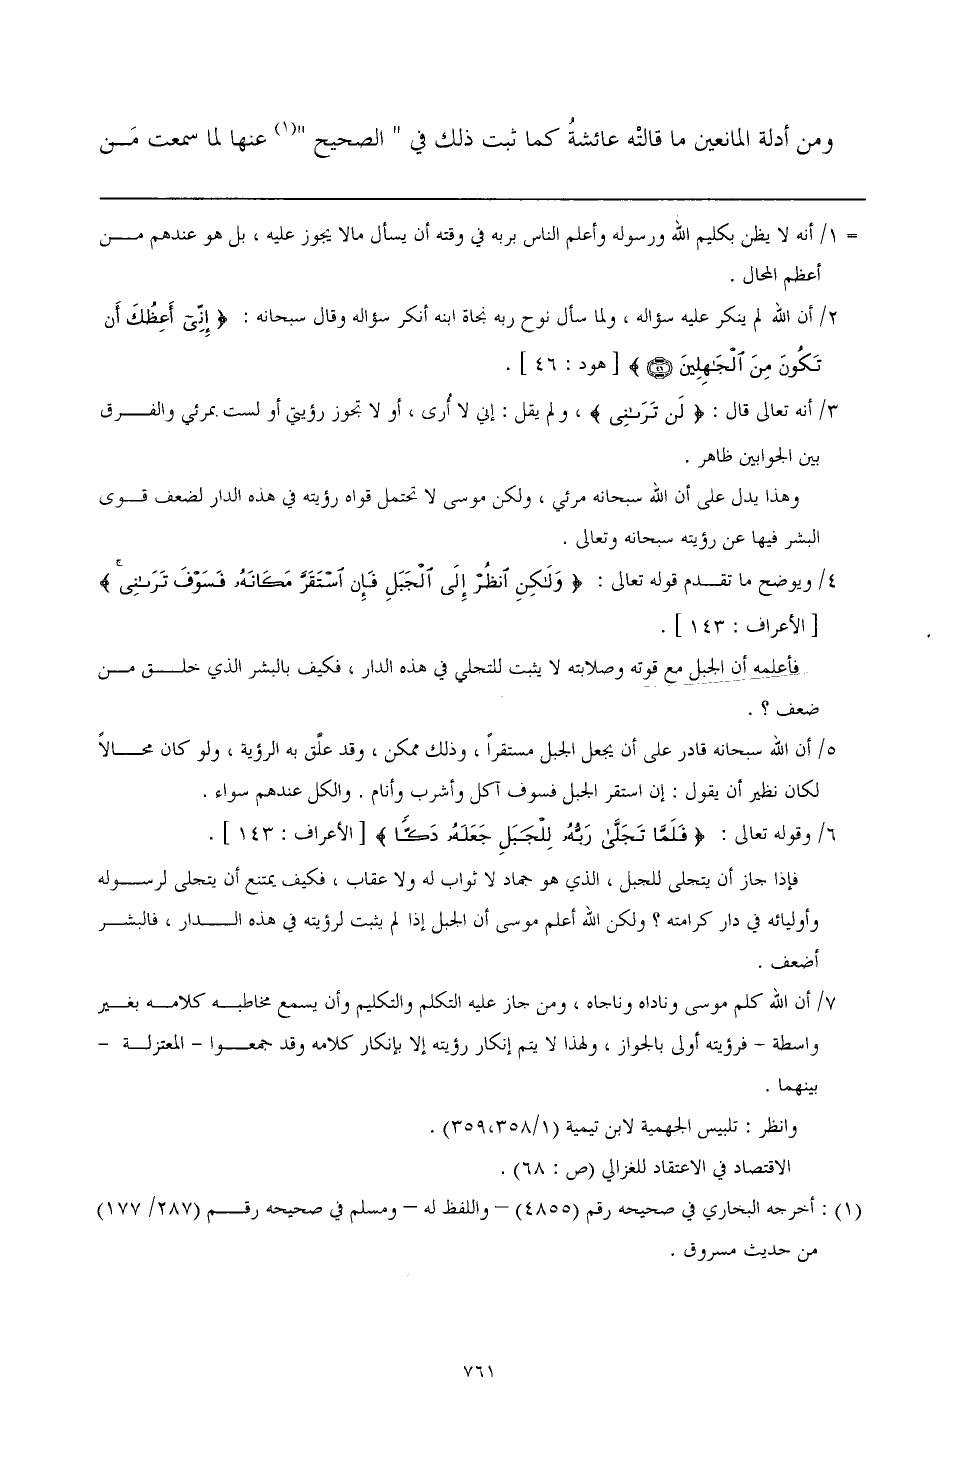 ومن أدلة المانعين ما قالتْه عائشةُ كما ثبت ذلك في " الصحيح "(١) عنها لما سمعت مَـن
= ١/ أنه لا يظن بكليم الله ورسوله وأعلم الناس بربه في وقته أن يسأل مالا يجوز عليه ، بل هو عندهم مـــن
أعظم المحال .
٢/ أن الله لم ينكر عليه سؤاله ، ولما سأل نوح ربه نجاة ابنه أنكر سؤاله وقال سبحانه : ﴿ إِنِّىٓ أَعِظُكَ أَن
تَكُونَ مِنَ ٱلْجَـٰهِلِينَ ﴿٤٦﴾ ﴾ [ هود : ٤٦ ] .
٣/ أنه تعالى قال : ﴿ لَن تَرَىٰنِى ﴾ ، ولم يقل : إني لا أُرى ، أو لا تجوز رؤيتي أو لست بمرئي والفـــرق
بين الجوابين ظاهر .
وهذا يدل على أن الله سبحانه مرئي ، ولكن موسى لا تحتمل قواه رؤيته في هذه الدار لضعف قـــوى
البشر فيها عن رؤيته سبحانه وتعالى .
٤/ ويوضح ما تقـــدم قوله تعالى : ﴿ وَلَـٰكِنِ ٱنظُرْ إِلَى ٱلْجَبَلِ فَإِنِ ٱسْتَقَرَّ مَكَانَهُۥ فَسَوْفَ تَرَىٰنِى ۚ ﴾
[ الأعراف : ١٤٣ ] .
فأعلمه أن الجبل مع قوته وصلابته لا يثبت للتجلي في هذه الدار ، فكيف بالبشر الذي خلـــق مـــن
ضعف ؟ .
٥/ أن الله سبحانه قادر على أن يجعل الجبل مستقراً ، وذلك ممكن ، وقد علّق به الرؤية ، ولو كان محـــالاً
لكان نظير أن يقول : إن استقر الجبل فسوف آكل وأشرب وأنام . والكل عندهم سواء .
٦/ وقوله تعالى : ﴿ فَلَمَّا تَجَلَّىٰ رَبُّهُۥ لِلْجَبَلِ جَعَلَهُۥ دَكًّا ﴾ [ الأعراف : ١٤٣ ] .
فإذا جاز أن يتجلى للجبل ، الذي هو جماد لا ثواب له ولا عقاب ، فكيف يمتنع أن يتجلى لرســـوله
وأوليائه في دار كرامته ؟ ولكن الله أعلم موسى أن الجبل إذا لم يثبت لرؤيته في هذه الـــــدار ، فالبشـــر
أضعف .
٧/ أن الله كلم موسى وناداه وناجاه ، ومن جاز عليه التكلم والتكليم وأن يسمع مخاطبـــه كلامـــه بغـــير
واسطة – فرؤيته أولى بالجواز ، ولهذا لا يتم إنكار رؤيته إلا بإنكار كلامه وقد جمعـــوا – المعتزلـــة –
بينهما .
وانظر : تلبيس الجهمية لابن تيمية (٣٥٩،٣٥٨/١) .
الاقتصاد في الاعتقاد للغزالي (ص : ٦٨) .
(١) : أخرجه البخاري في صحيحه رقم (٤٨٥٥) – واللفظ له – ومسلم في صحيحه رقـــم (٢٨٧/ ١٧٧)
من حديث مسروق .
٧٦١